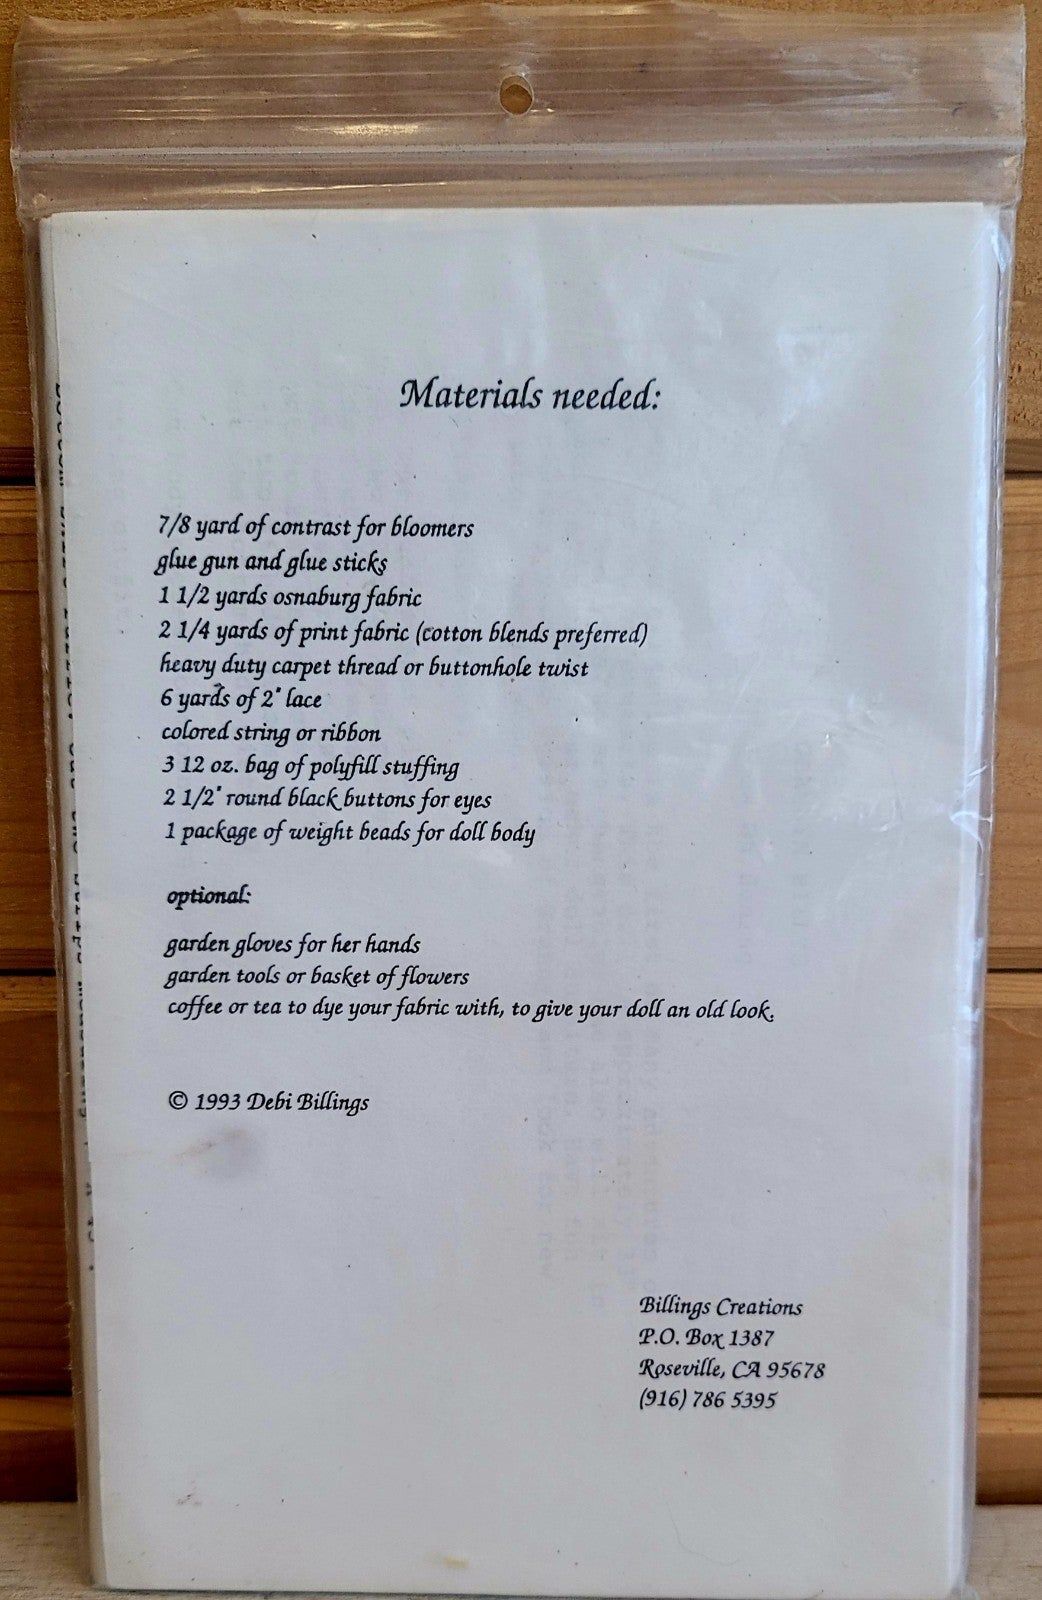 Materials needed:
7/8 yard of contrast for bloomers
glue gun and glue sticks
1 1/2 yards osnaburg fabric
2 1/4 yards of print fabric (cotton blends preferred)
heavy duty carpet thread or buttonhole twist
6 yards of 2" lace
colored string or ribbon
3 12 oz. bag of polyfill stuffing
2 1/2" round black buttons for eyes
1 package of weight beads for doll body
optional:
garden gloves for her hands
garden tools or basket of flowers
coffee or tea to dye your fabric with, to give your doll an old look.
© 1993 Debi Billings
Billings Creations
P.O. Box 1387
Roseville, CA 95678
(916) 786 5395